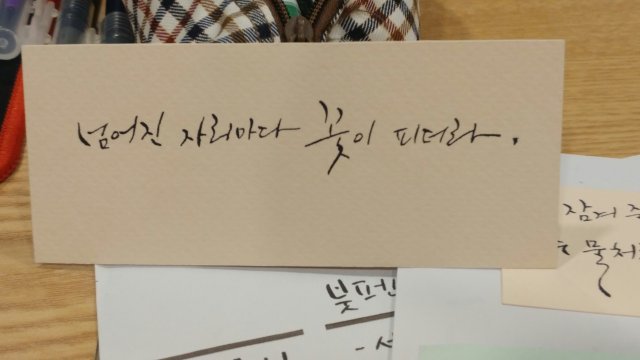 넘어진 자리마다 꽃이 피더라.
잠겨 주
물처
붓펜